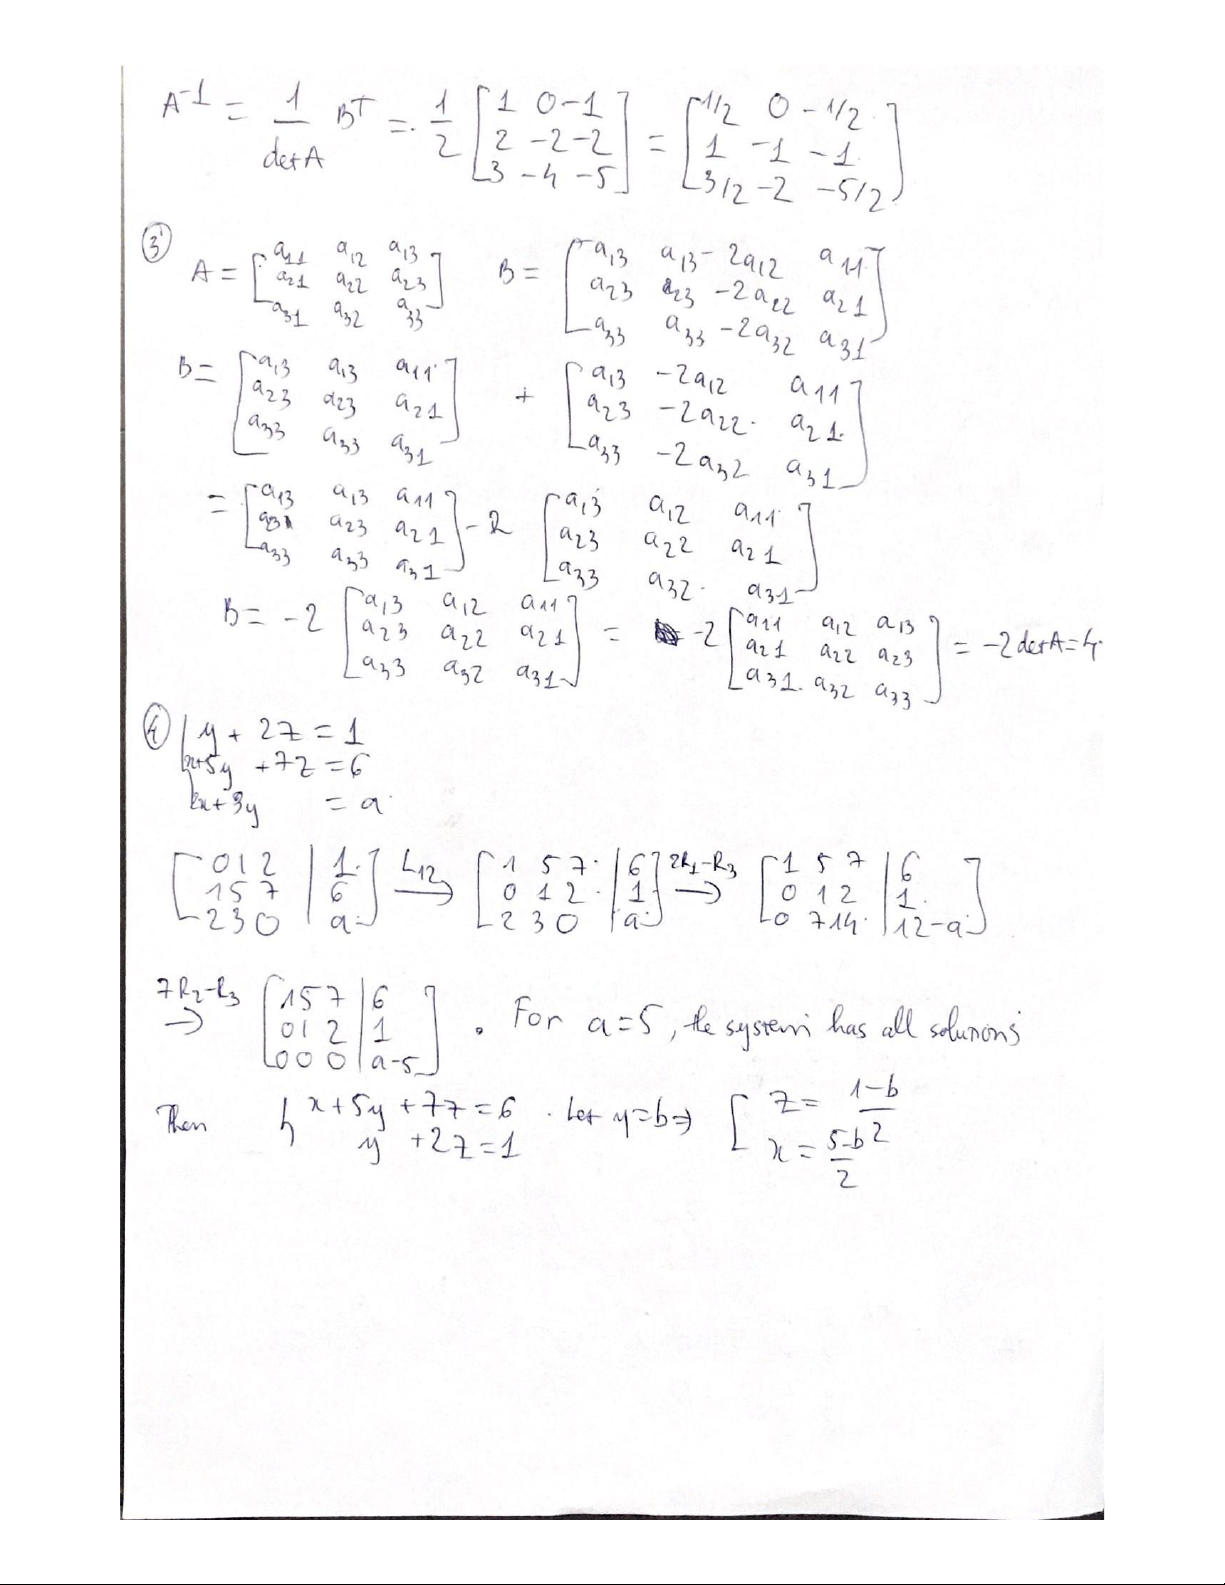 A^-1 = 1/detA B^T = 1/2 [1 0 -1; 2 -2 -2; 3 -4 -5] = [1/2 0 -1/2; 1 -1 -1; 3/2 -2 -5/2]
③ A = [a11 a12 a13; a21 a22 a23; a31 a32 a33] B = [a13 a13-2a12 a11; a23 a23-2a22 a21; a33 a33-2a32 a31]
B = [a13 a13 a11; a23 a23 a21; a33 a33 a31] + [a13 -2a12 a11; a23 -2a22 a21; a33 -2a32 a31]
= [a13 a13 a11; a23 a21; a33 a33 a31] -2 [a13 a12 a11; a23 a22 a21; a33 a32 a31]
B = -2 [a13 a12 a11; a23 a22 a21; a33 a32 a31] = -2 [a11 a12 a13; a21 a22 a23; a31 a32 a33] = -2detA=4
④ y + 2z = 1
x+5y +7z = 6
2x+3y = a
[0 1 2 | 1; 1 5 7 | 6; 2 3 0 | a] L12 → [1 5 7 | 6; 0 1 2 | 1; 2 3 0 | a] 2R1-R3 → [1 5 7 | 6; 0 1 2 | 1; 0 7 14 | 12-a]
7R2-R3 → [1 5 7 | 6; 0 1 2 | 1; 0 0 0 | a-5] . For a=5, the system has all solutions
Then { x+5y+7z=6 . Let y=b ⇒ [ z = 1-b/2
y +2z=1 x = 5-b/2